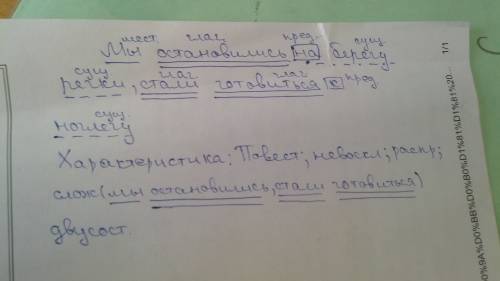 мест глаг пред. сущ
Мы остановились на берегу
сущ глаг глаг
речки, стали готовиться к пред
сущ
ноглегу
Характеристика: Повест; невоскл; распр;
слож(мы остановились, стали готовиться)
двусост.
1/1
0%9A%D0%B8%D1%81%D1%81%20...